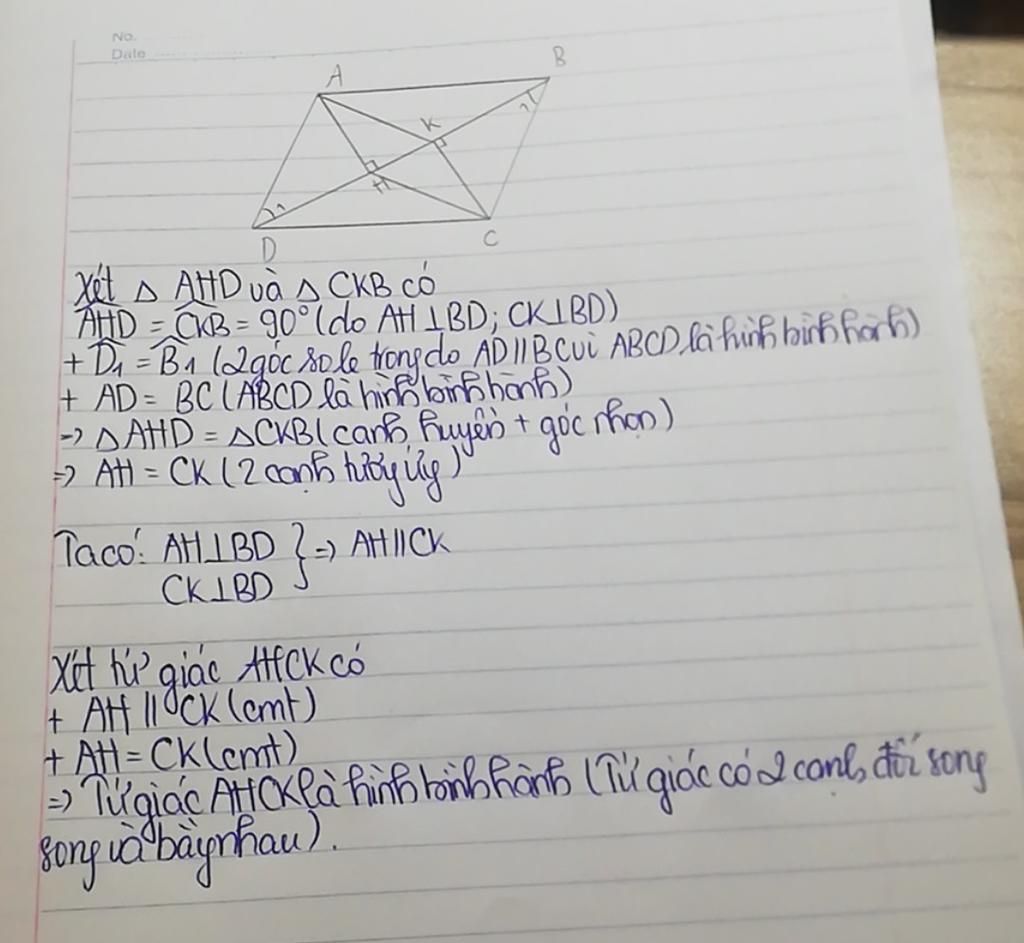 No.
Date
A
B
K
2
1
H
2
1
D
C
Xét △ AHD và △ CKB có
AHD = CKB = 90° (do AH⊥BD; CK⊥BD)
+ D1 = B1 (2 góc so le trong do AD//BC vì ABCD là hình bình hành)
+ AD = BC (ABCD là hình bình hành)
=> △AHD = △CKB (cạnh huyền + góc nhọn)
=> AH = CK (2 cạnh tương ứng)
Ta có: AH⊥BD } => AH//CK
CK⊥BD
Xét tứ giác AHCK có
+ AH // CK (cmt)
+ AH = CK (cmt)
=> Tứ giác AHCK là hình bình hành (Tứ giác có 2 cạnh đối song
song và bằng nhau).